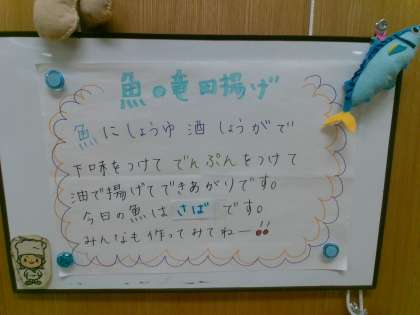 魚の竜田揚げ
魚にしょうゆ 酒 しょうがで
下味をつけて でんぷんをつけて
油で揚げてできあがりです。
今日の魚は さば です。
みんなも作ってみてねー!!